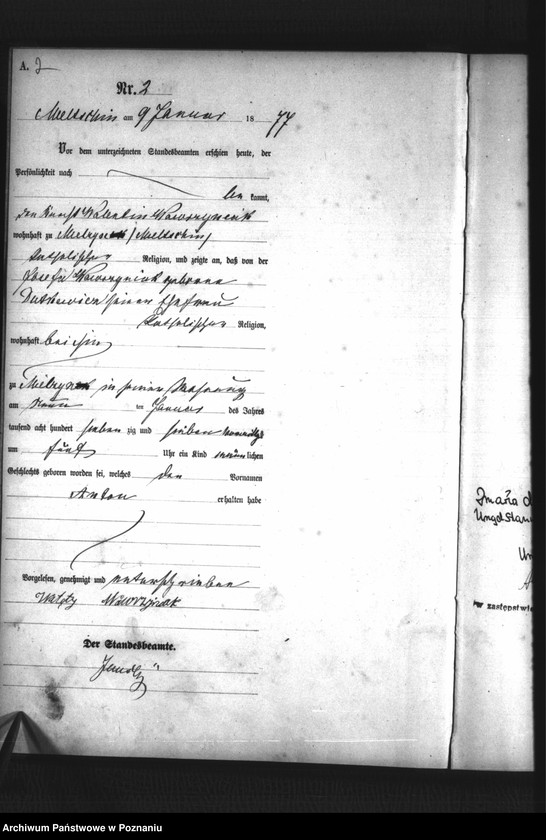 A. 2
Nr. 2
Meltschin am 9 Januar 1877
Vor dem unterzeichneten Standesbeamten erschien heute, der
Persönlichkeit nach
be kannt,
den Valentin Wawrzyniak
wohnhaft zu Melzyn (Meltschin)
katholischer Religion, und zeigte an, daß von der
Josefa Wawrzyniak geborene
seiner Ehefrau
katholischer Religion,
wohnhaft bei ihm
zu in seiner Wohnung
am neun ten Januar des Jahres
tausend acht hundert sieben zig und sieben Vormittags
um fünf Uhr ein Kind männlichen
Geschlechts geboren worden sei, welches den Vornamen
Anton erhalten habe
Vorgelesen, genehmigt und unterschrieben
Walenty Wawrzyniak
Der Standesbeamte.
zastępstwie
Archiwum Państwowe w Poznaniu